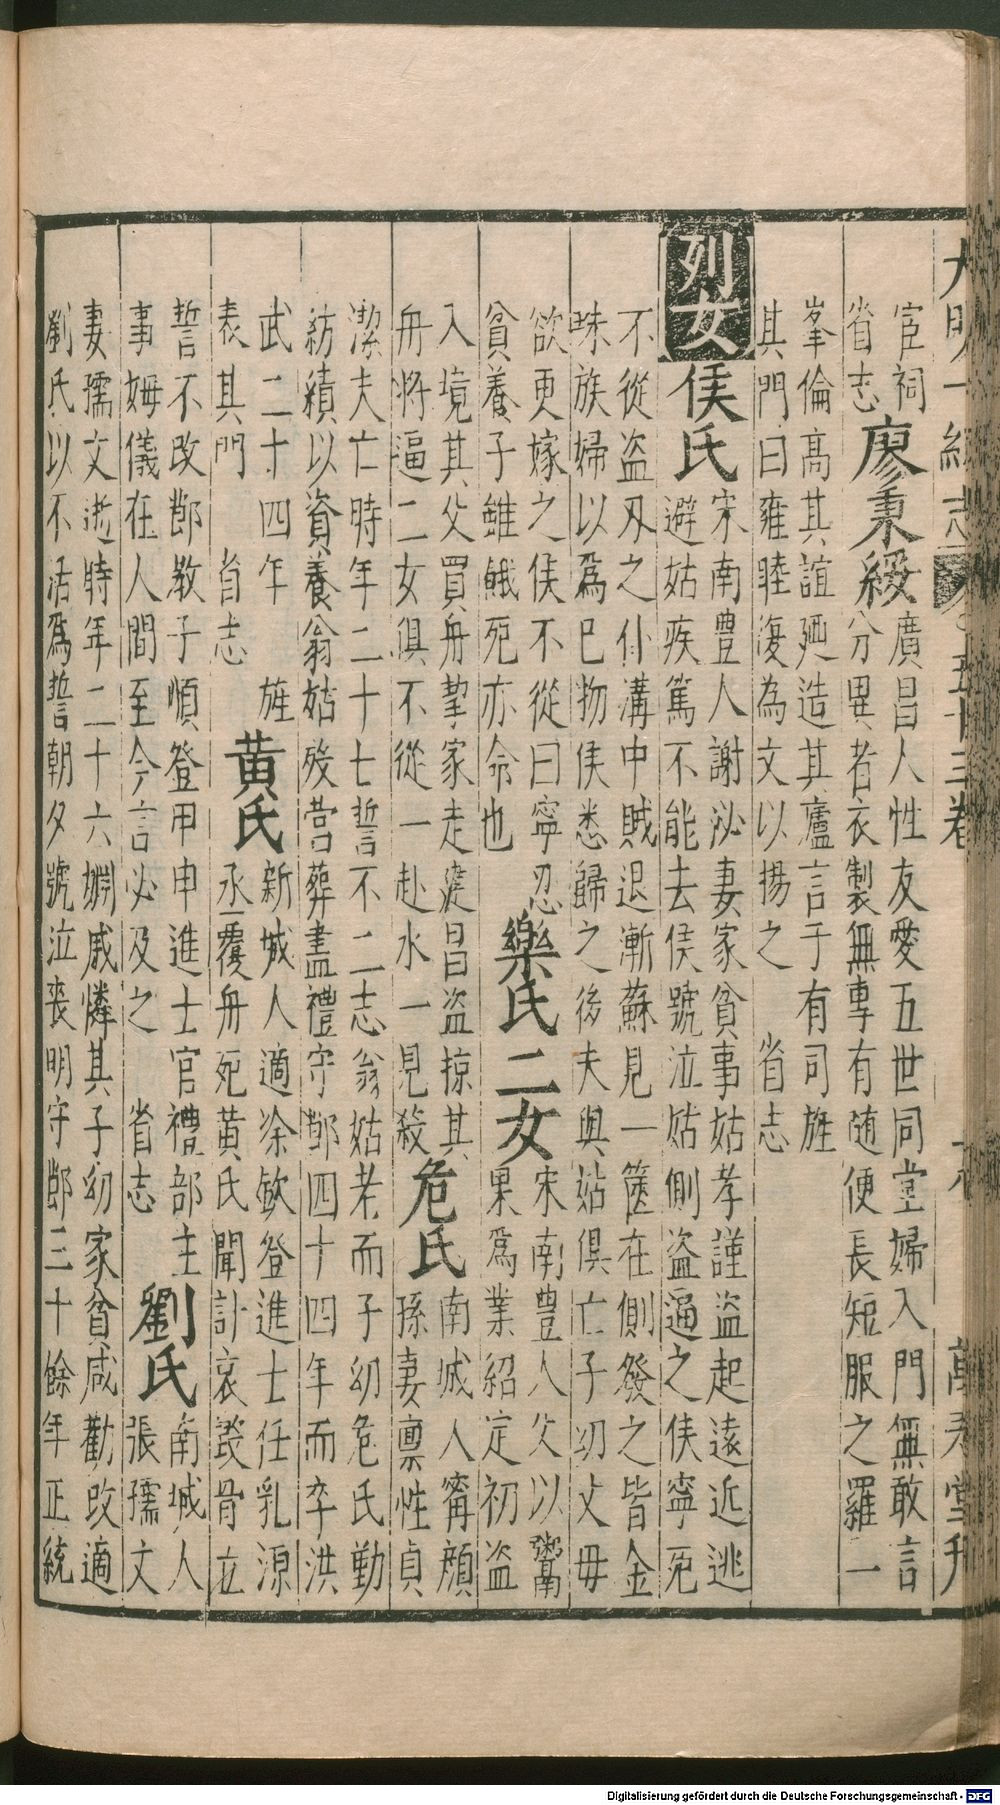 大明一統志 五十三卷 萬寿堂刊
宦祠
省志
廖秉綬
廣昌人性友愛五世同堂婦入門無敢言
分異者衣製無專有随便長短服之羅一
峯倫高其誼廼造其廬言于有司旌
其門曰雍睦復為文以揚之 省志
列女 侯氏
宋南豊人謝泌妻家貧事姑孝謹盗起遠近逃
避姑疾篤不能去侯號泣姑側盗逼之侯寧死
不從盗刄之仆溝中賊退漸蘇見一篋在側發之皆金
珠族婦以爲已物侯悉歸之後夫與姑俱亡子幼丈毋
欲更嫁之侯不從曰寧忍
貧養子雖餓死亦命也
樂氏二女
宋南豊人父以鬻
果爲業紹定初盗
入境其父買舟挈家走建昌盗掠其
舟將逼二女俱不從一赴水一見殺
危氏
南城人甯顔
孫妻禀性貞
潔夫亡時年二十七誓不二志翁姑老而子幼危氏勤
紡績以資養翁姑殁营葬盡禮守節四十四年而卒洪
武二十四年 旌
表其門 省志
黄氏
新城人適涂欽登進士任乳源
丞覆舟死黄氏聞訃哀毀骨立
誓不改節教子順登甲申進士官禮部主
事姆儀在人間至今言必及之 省志
劉氏
南城人
張孺文
妻孺文逝時年二十六姻戚憐其子幼家貧咸勸改適
劉氏以不活爲誓朝夕號泣喪明守節三十餘年正統
Digitalisierung gefördert durch die Deutsche Forschungsgemeinschaft - DFG